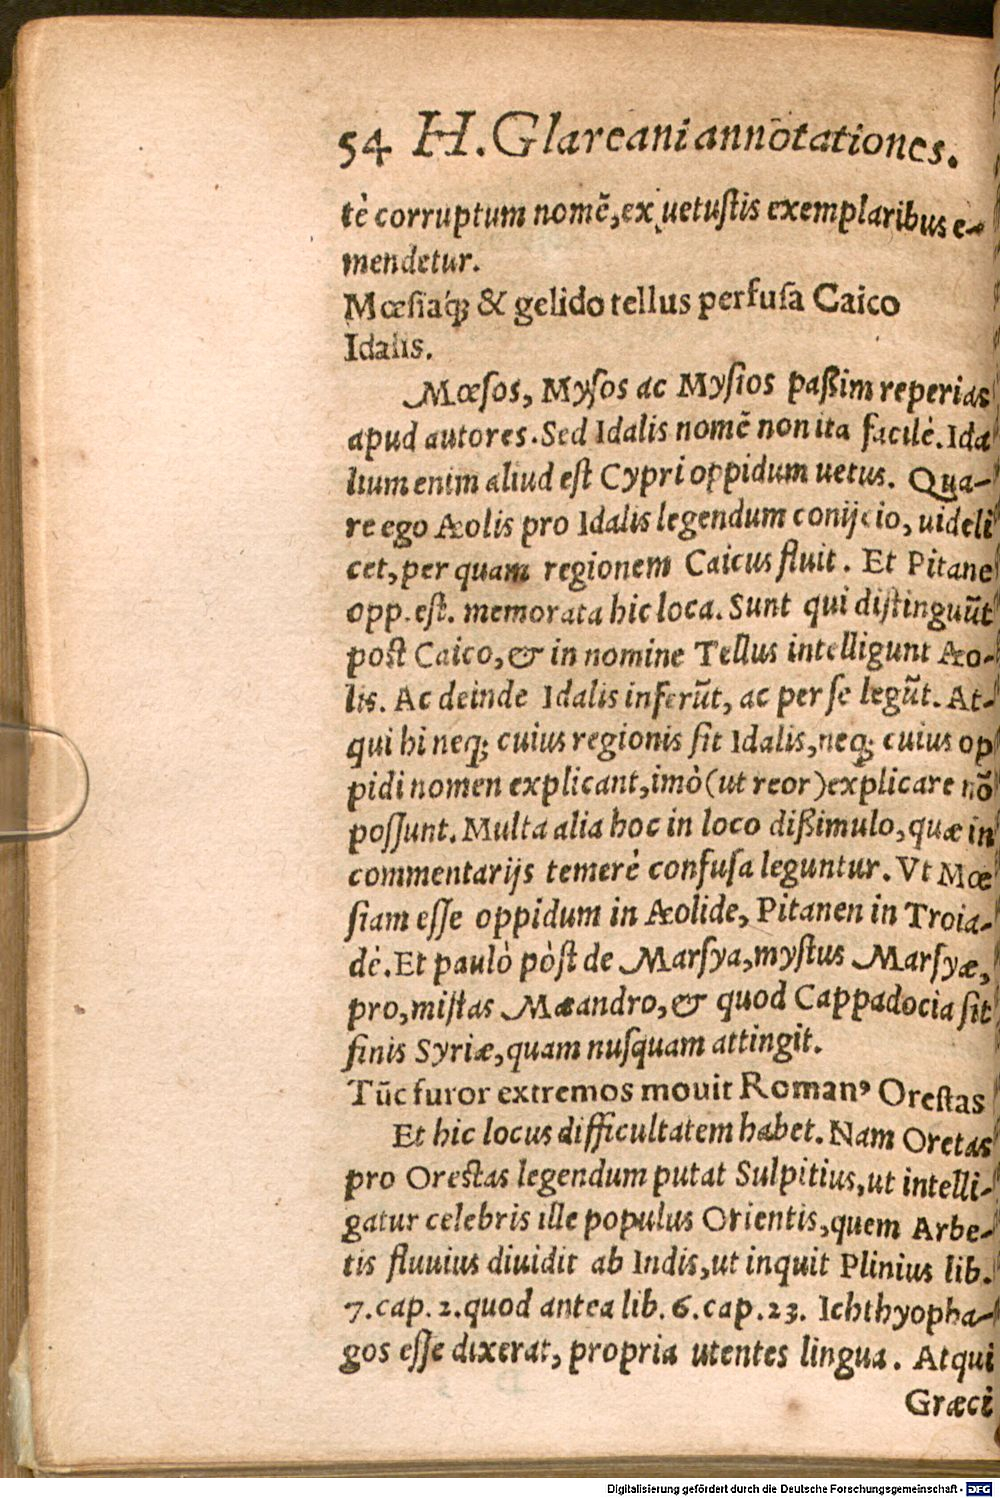 54 H. Glareani annotationes.
tè corruptum nomē, ex uetuſtis exemplaribus e-
mendetur.
Mœſiaq́; & gelido tellus perfuſa Caico
Idalis.
Mœſos, Myſos ac Myſios paßim reperias
apud autores. Sed Idalis nomē non ita facilè. Ida
lium enim aliud eſt Cypri oppidum uetus. Qua-
re ego Æolis pro Idalis legendum conijcio, uideli
cet, per quam regionem Caicus fluit. Et Pitane
opp. eſt. memorata hic loca. Sunt qui diſtinguūt
poſt Caico, & in nomine Tellus intelligunt Æo-
lis. Ac deinde Idalis inferūt, ac per ſe legūt. At-
qui hi neq; cuius regionis ſit Idalis, neq; cuius op
pidi nomen explicant, imò (ut reor) explicare nō
poſſunt. Multa alia hoc in loco dißimulo, quæ in
commentarijs temerè confuſa leguntur. Vt Mœ
ſiam eſſe oppidum in Æolide, Pitanen in Troia-
dè. Et paulò pòſt de Marſya, myſtus Marſyæ,
pro, miſtas Mæandro, & quod Cappadocia ſit
finis Syriæ, quam nuſquam attingit.
Tūc furor extremos mouit Romanꝰ Oreſtas
Et hic locus difficultatem habet. Nam Oretas
pro Oreſtas legendum putat Sulpitius, ut intelli-
gatur celebris ille populus Orientis, quem Arbe-
tis fluuius diuidit ab Indis, ut inquit Plinius lib.
7. cap. 2. quod antea lib. 6. cap. 23. Ichthyopha-
gos eſſe dixerat, propria utentes lingua. Atqui
Græci
Digitalisierung gefördert durch die Deutsche Forschungsgemeinschaft - DFG